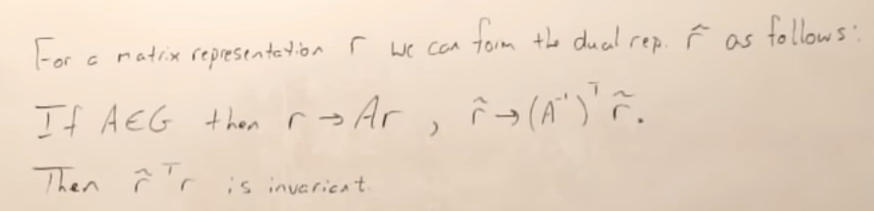 For a matrix representation r we can form the dual rep. r̃ as follows:
If A∈G then r → Ar , r̃ → (A⁻¹)ᵀ r̃.
Then r̃ᵀr is invariant.